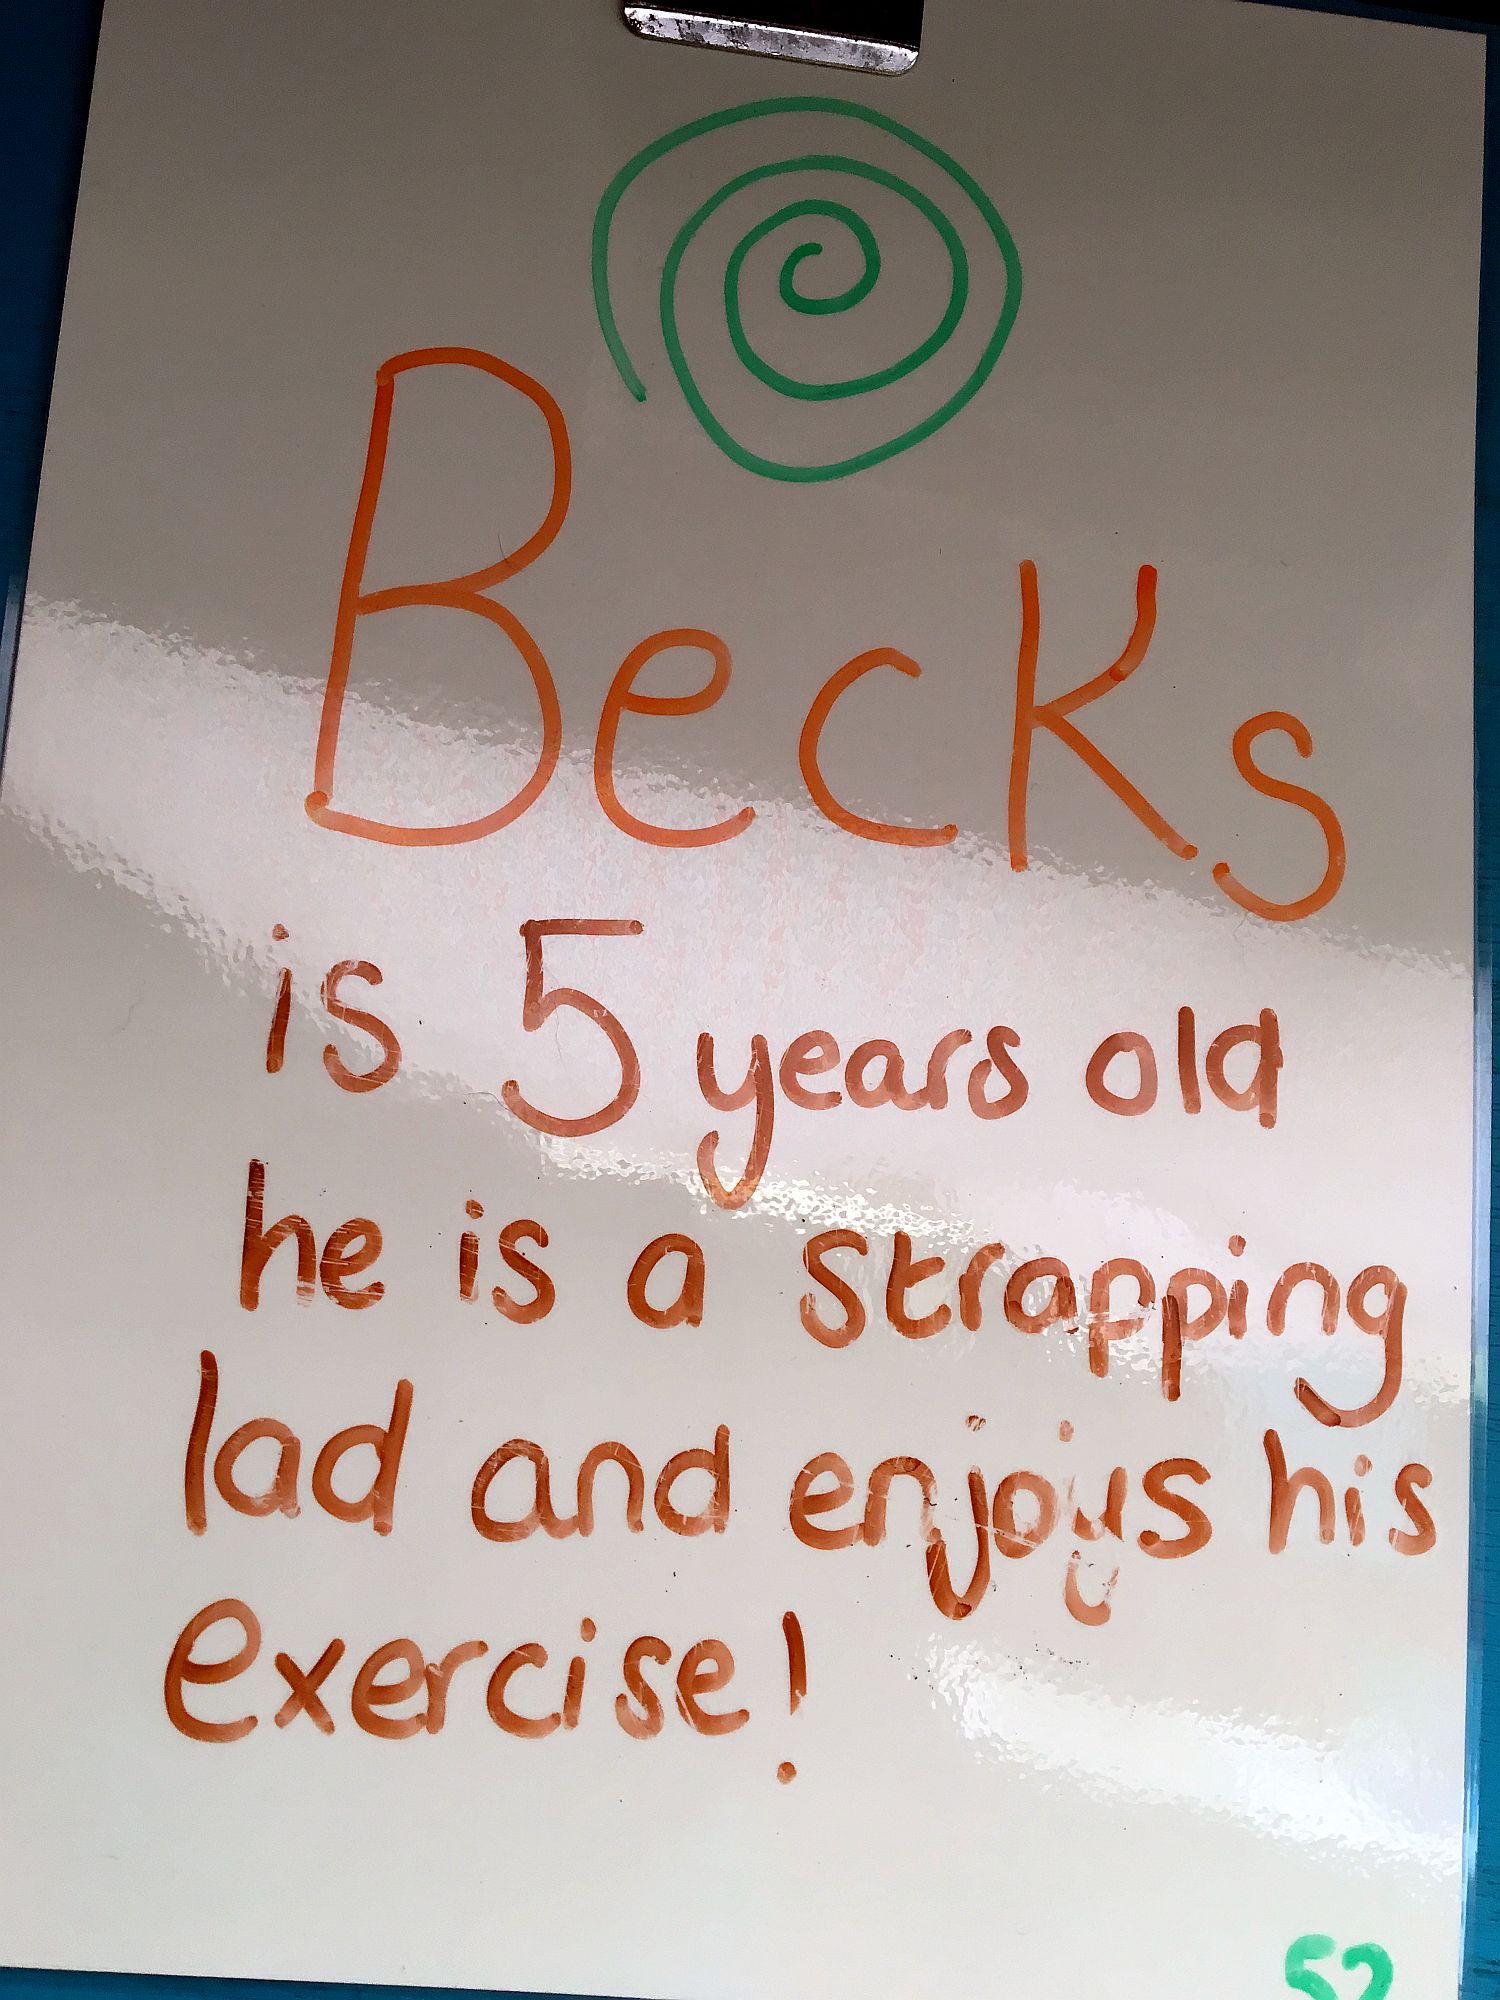 Becks
is 5 years old
he is a strapping
lad and enjoys his
exercise!
52